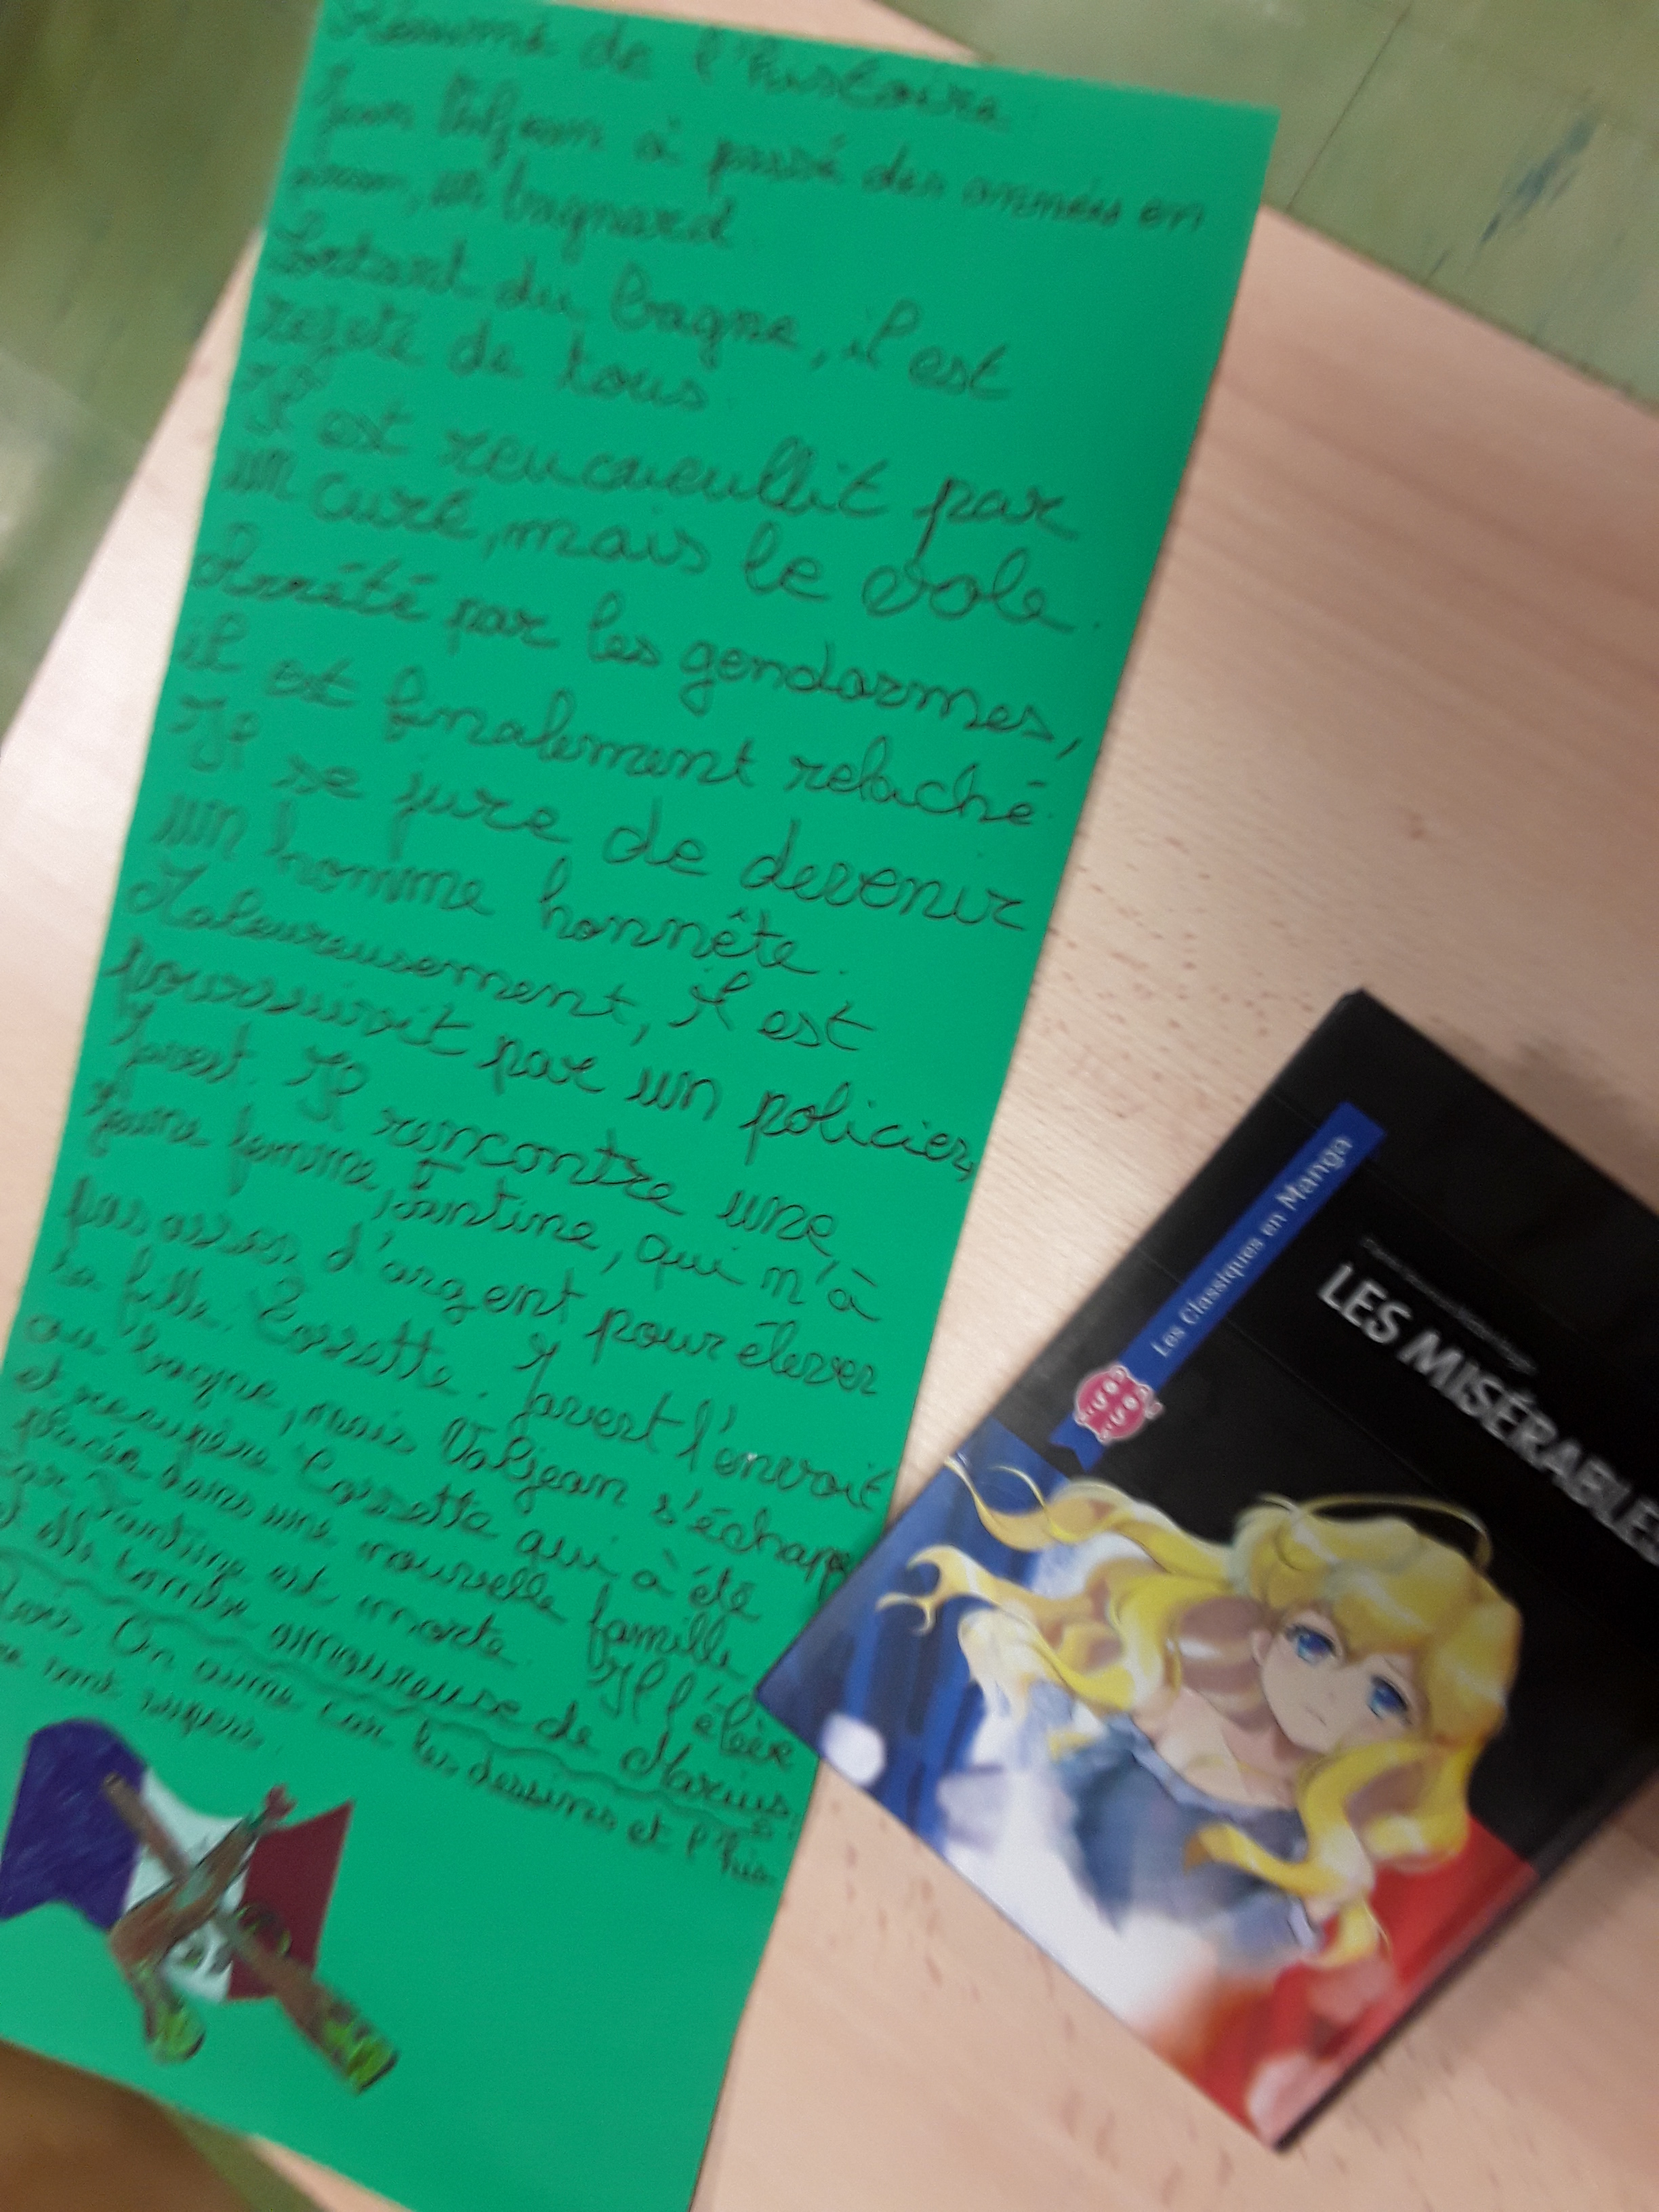 Résumé de l'histoire
Jean Valjean à passé des années en
prison, un bagnard.
Sortant du bagne, il est
rejeté de tous.
Il est reucueullit par
un curé, mais le vole.
Arrété par les gendarmes,
il est finalement relaché.
Il se jure de devenir
un homme honnête.
Maleureusement, il est
poursuivit par un policier,
Javert. Il rencontre une
jeune femme, Fantine, qui n'à
pas assez d'argent pour élever
sa fille. Cossette. Javert l'envoit
au bagne, mais Valjean s'échape
et recupère Cossette qui à été
placée dans une nouvelle famille
car Fantine est morte. Il l'élève
et elle tombe amoureuse de Marius.
On aime car les dessins et l'his-
sont super.
Les Classiques en Manga
LES MISÉRABLES